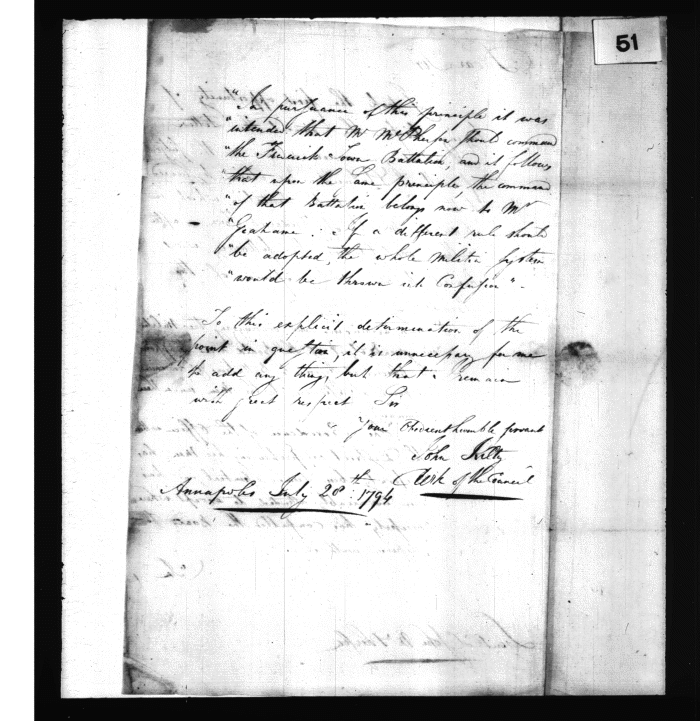 51
"In pursuance of this principle it was
"intended that Mr McPherson should command
"the Frederick-Town Battalion, and it follows
that upon the same principle, the command
"of that Battalion belongs now to Mr
"Grahame. If a different rule should
"be adopted, the whole militia System
"would be thrown into Confusion".
To this explicit determination of the
point in question, it is unnecessary for me
to add any thing, but that I remain
with great respect Sir
Your Obedient humble servant
John Kilty
Clerk of the Council
Annapolis July 28th 1794